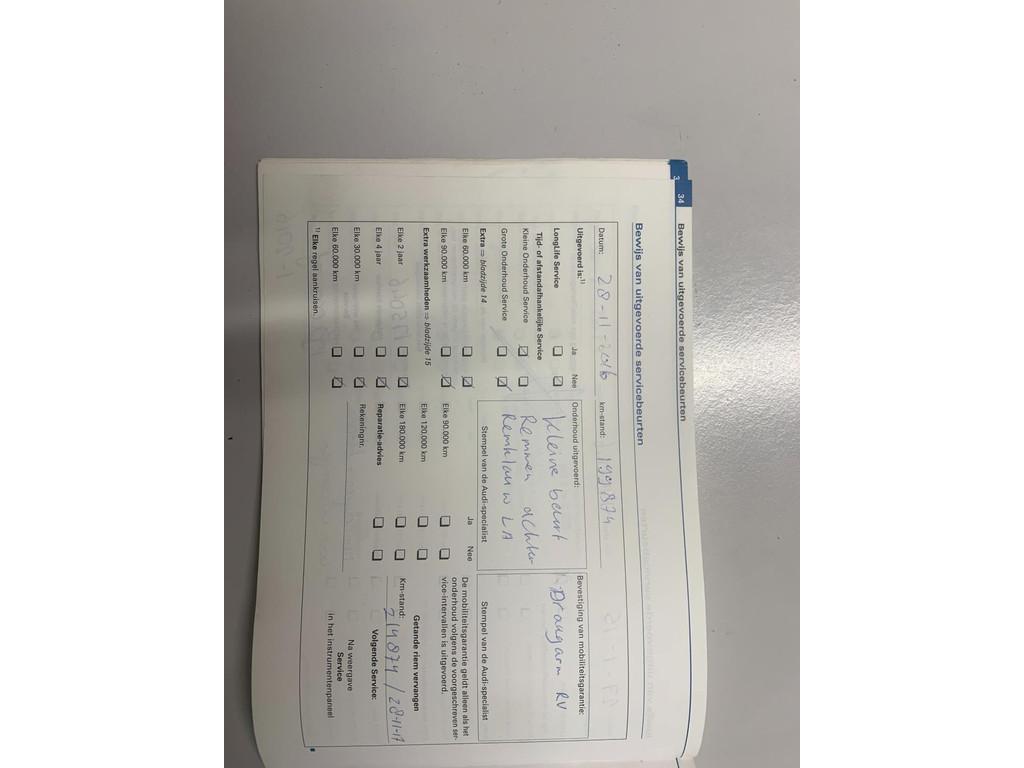 34 Bewijs van uitgevoerde servicebeurten
3
Bewijs van uitgevoerde servicebeurten
Datum: 28-11-2016 km-stand: 199874
Uitgevoerd is:1) Ja Nee
LongLife Service
Tijd- of afstandafhankelijke Service
Kleine Onderhoud Service
Grote Onderhoud Service
Extra ⇒ bladzijde 14
Elke 60.000 km
Elke 90.000 km
Extra werkzaamheden ⇒ bladzijde 15
Elke 2 jaar
Elke 4 jaar
Elke 30.000 km
Elke 60.000 km
1) Elke regel aankruisen.
Onderhoud uitgevoerd:
Kleine beurt
Remmen achter
Remklauw LA
Stempel van de Audi-specialist
Ja Nee
Elke 90.000 km
Elke 120.000 km
Elke 180.000 km
Reparatie-advies
Rekeningnr.
Bevestiging van mobiliteitsgarantie:
Draagarm RV
Stempel van de Audi-specialist
De mobiliteitsgarantie geldt alleen als het
onderhoud volgens de voorgeschreven ser-
vice-intervallen is uitgevoerd.
Getande riem vervangen
Km-stand: 214874 / 28-11-17
Volgende Service:
Na weergave
Service
in het instrumentenpaneel